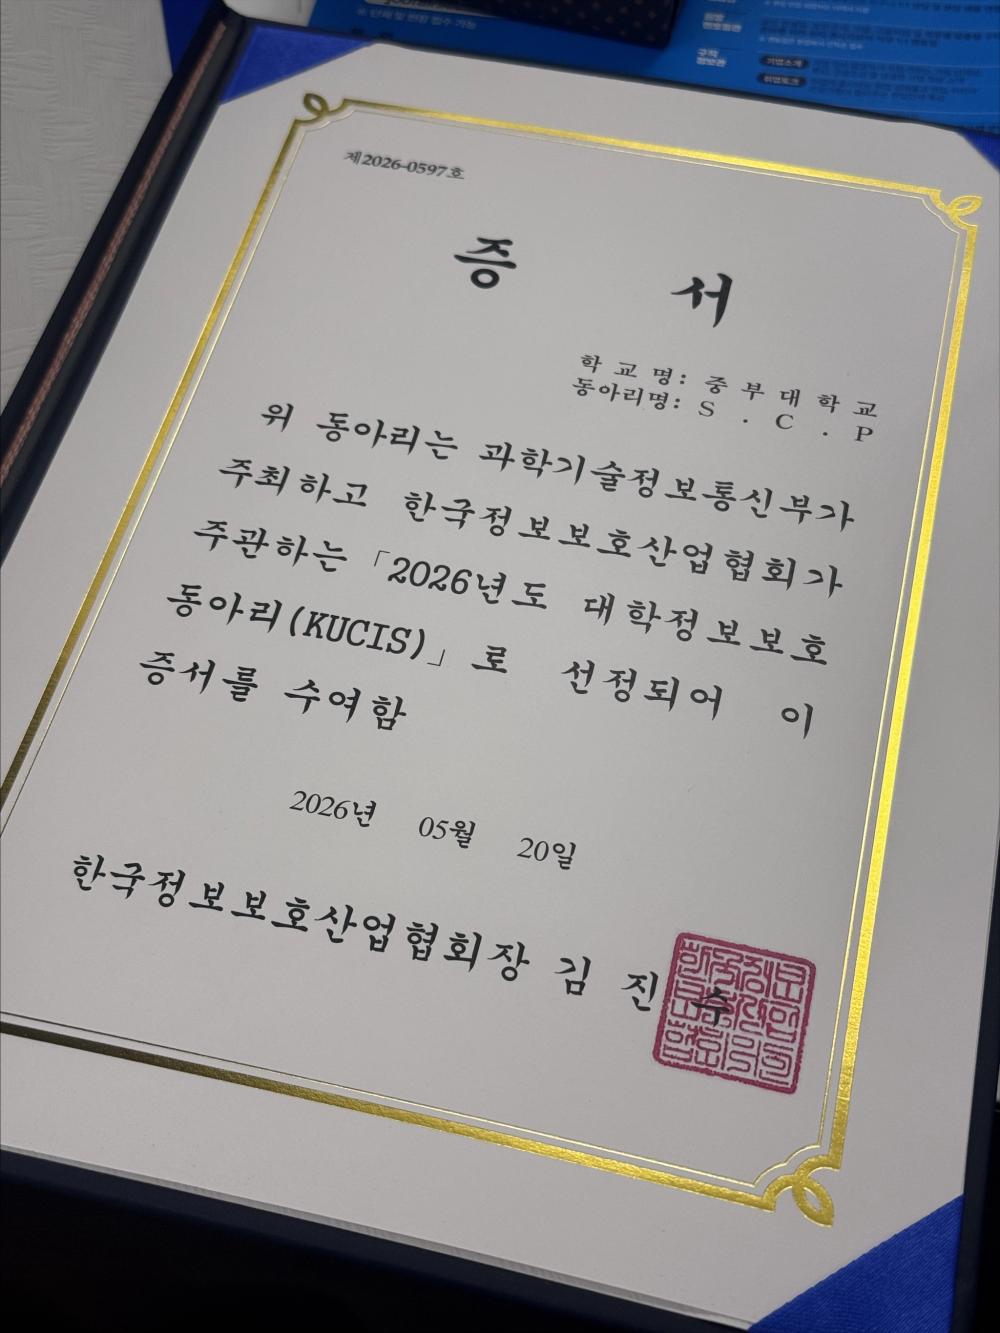 ※ 단체 및 현장 접수 가능
구직
정보관
기업소개
취업토크
제2026-0597호
증 서
학 교 명: 중 부 대 학 교
동아리명: S . C . P
위 동아리는 과학기술정보통신부가
주최하고 한국정보보호산업협회가
주관하는「2026년도 대학정보보호
동아리(KUCIS)」로 선정되어 이
증서를 수여함
2026년 05월 20일
한국정보보호산업협회장 김 진 수